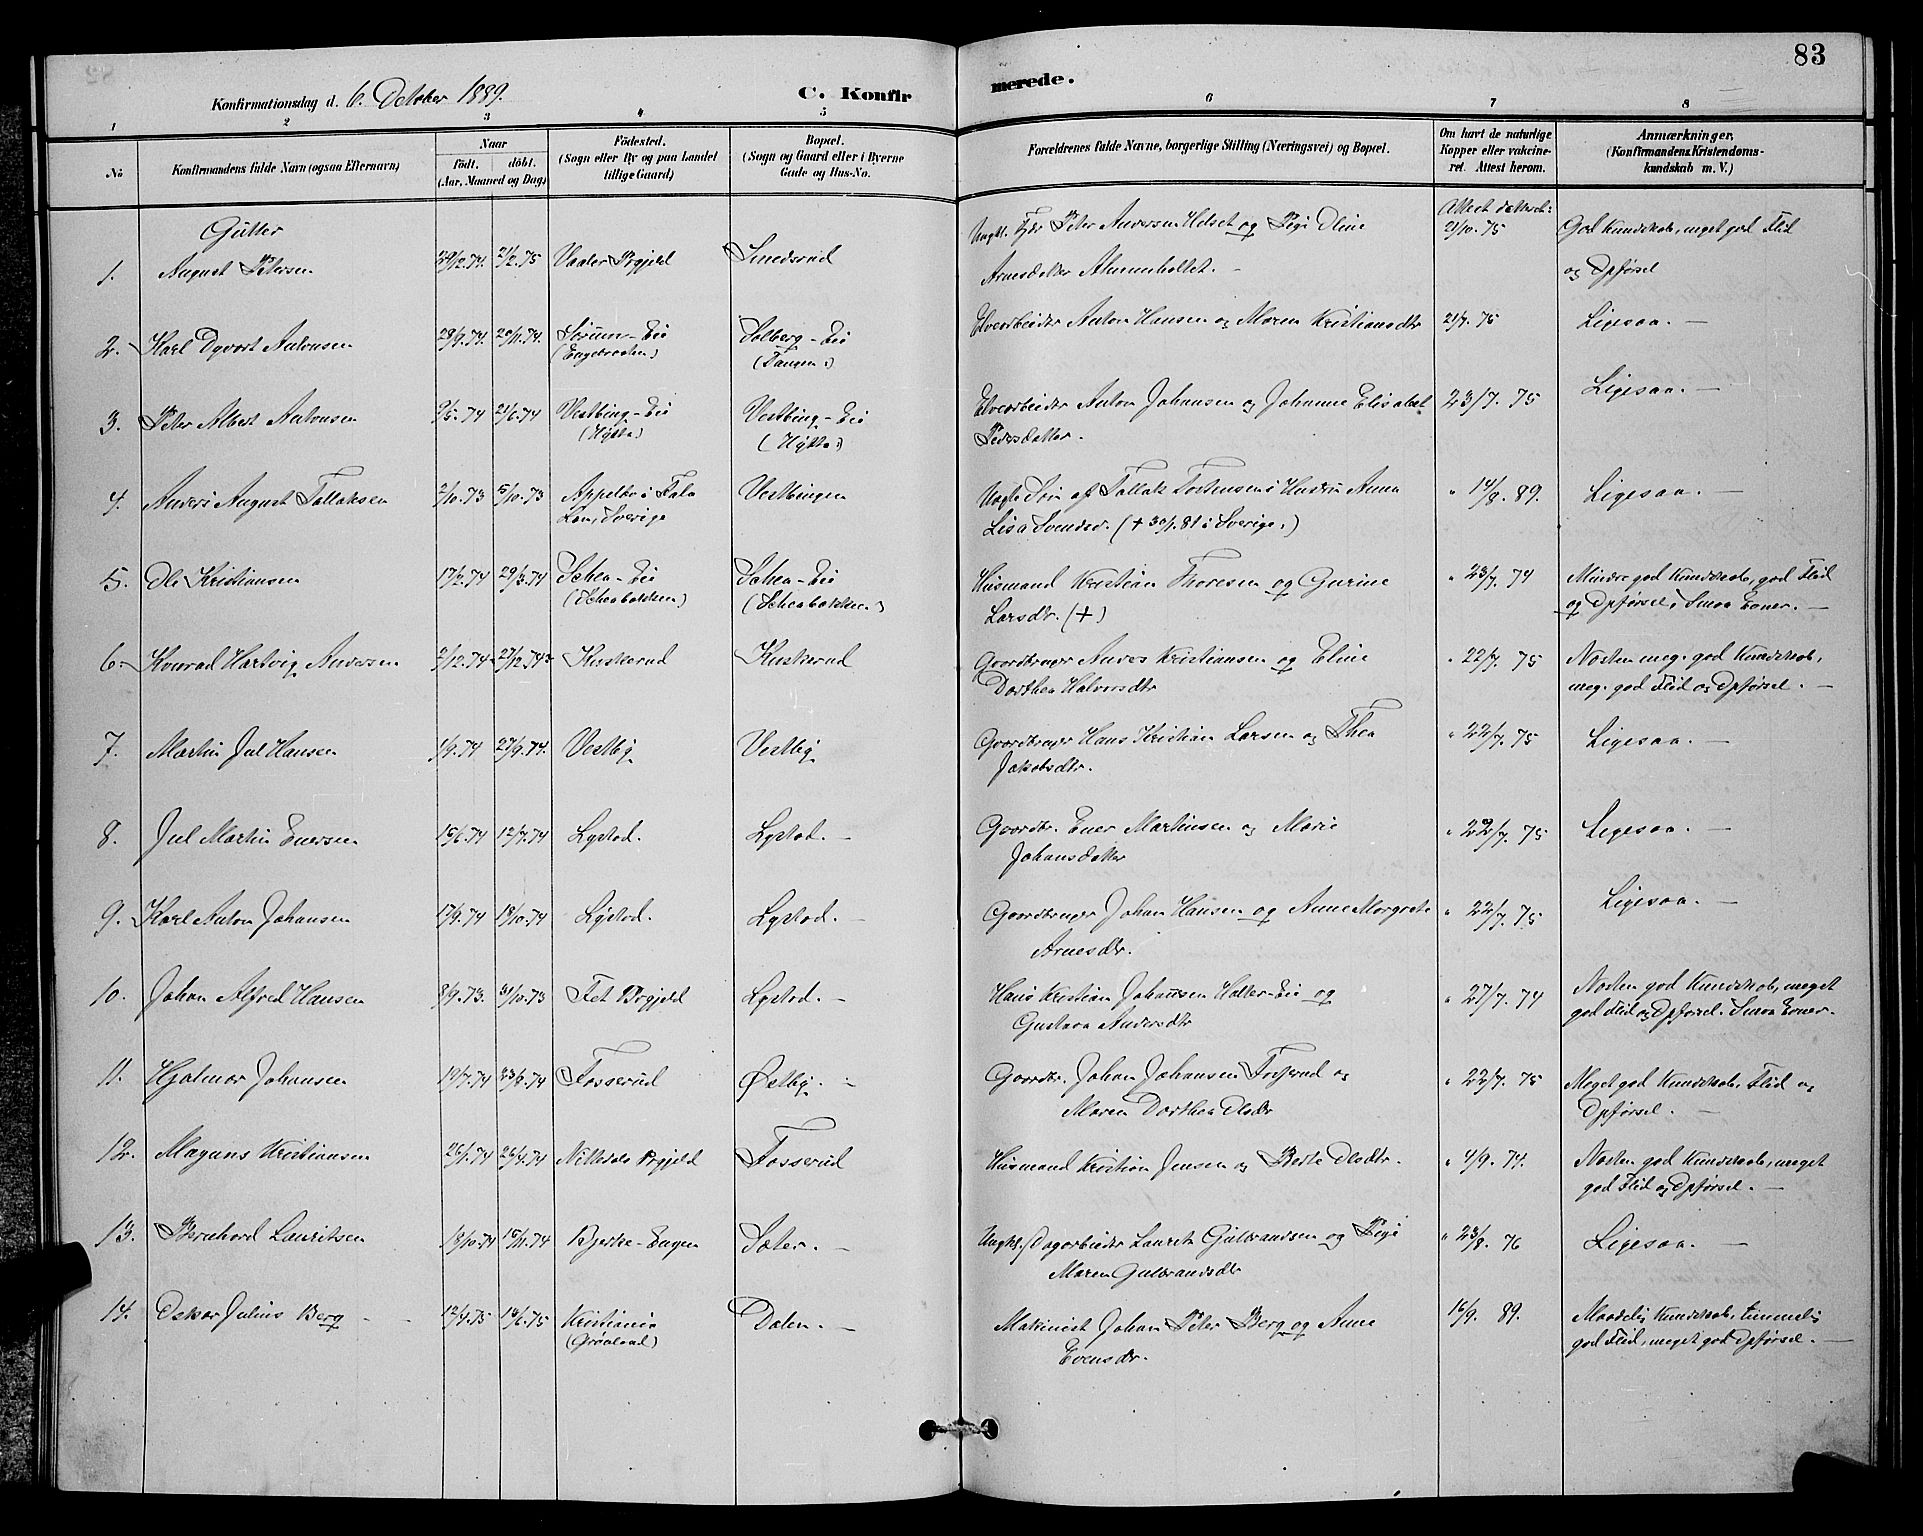 83
Konfirmationsdag d. 6. October 1889.
C. Konfirmerede.
1 2 3 4 5 6 7 8
No
Konfirmandens fulde Navn (ogsaa Efternavn)
Naar
Födt. döbt.
(Aar, Maaned og Dag)
Födested.
(Sogn eller By og paa Landet
tillige Gaard)
Bopæl.
(Sogn og Gaard eller i Byerne
Gade og Hus-No.
Forældrenes fulde Navne, borgerlige Stilling (Næringsvei) og Bopæl.
Om havt de naturlige
Kopper eller vakcine-
ret. Attest herom.
Anmærkninger.
(Konfirmandens Kristendoms-
kundskab m. V.)
Gutter
1. August Petersen 29/12.74. 21/2.75 Vaaler Prgjeld Smedsrud Ungk. Peter Andersen Helset og Pige Oline 21/10. 75 God Kundskab, meget god Flid
Arnesdatter og Opførsel
2. Karl Ogvart Antonsen 28/9.74. 20/11.74. Sørum-Eie Solberg-Eie Elvearbeider Anton Hansen og Maren Kristiansdtr 21/7. 75 Ligesaa. —
(Engebraaten) (Tangen)
3. Peter Albert Antonsen 9/5.74 21/6.74 Vestbing-Eie Vestbing-Eie Elvearbeider Anton Johansen og Johanne Elisabet 23/7. 75 Ligesaa. —
(Hytta) (Hytta) Pedersdatter.
4. Anders August Tollaksen 2/10.73 5/10.73 Appelbo i Fala Vestbingen Uægte Søn af Tollak Tostensen i Hustru Anna " 14/8. 89. Ligesaa. —
Len, Sverige Lisa Svendsd. (+ 30/1. 81 i Sverige.)
5. Ole Kristiansen 17/2.74 29/3.74 Schea-Eie Schea-Eie Husmand Kristian Thoresen og Gurine " 23/7. 74 Mindre god Kundskab, god Flid
(Scheabakken) (Scheabakken) Larsdtr. (+) og Opførsel, Smaa Evner. —
6. Konrad Hartvig Andersen 2/12.74 27/12.74 Kuskerud Kuskerud Gaardbruger Anders Kristiansen og Eline " 22/7. 75 Næsten meg. god Kundskab,
Dorthea Halvorsdtr meg. god Flid og Opførsel. —
7. Martin Jul Hansen 1/9.74 27/9.74. Vestby Vestby Gaardbruger Hans Kristian Larsen og Thea " 22/7. 75 Ligesaa. —
Jakobsdtr.
8. Jul Martin Enersen 15/6.74 12/7.74 Lystad. Lystad. — Gaardbr. Ener Martinsen og Marie " 22/7. 75 Ligesaa. —
Johansdatter
9. Karl Anton Johansen 17/9.74 18/10.74 Lystad. Lystad. — Gaardbruger Johan Hansen og Anne Margrete " 22/7. 75 Ligesaa. —
Arnesdtr.
10. Johan Alfred Hansen 8/9.73. 31/10.73 Fet Prgjeld Lystad. — Hans Kristian Johansen Holter-Eie og " 27/7. 74 Næsten god Kundskab, meget
Gustava Andersdtr god Flid og Opførsel. Smaa Evner.
11. Hjalmar Johansen 19/7.74 23/8.74 Fosserud Østby. — Gaardbr. Johan Johansen Fosserud og " 22/7. 75 Meget god Kundskab, Flid og
Maren Dorthea Olsdtr Opførsel. —
12. Magnus Kristiansen 26/1.74 26/4.74 Nittedals Prgjeld Fosserud Husmand Kristian Jensen og Berte Olsdtr. " 4/9. 74. Næsten god Kundskab, meget
god Flid og Opførsel. —
13. Bernhard Lauritsen 18/10.74 15/11.74 Bjerke-Engen Sæter. — Ungkl./Dagarbeider Laurits Gulbrandsen og Pige " 23/8. 76 Ligesaa. —
Maren Gulbrandsdtr
14. Oskar Julius Berg 12/4.75 14/6.75 Kristiania Dalen. — Makinist Johan Peter Berg og Anne 16/9. 89. Maadelig Kundskab, temmelig
(Grønland) Evensdtr. god Flid, meget god Opførsel. —